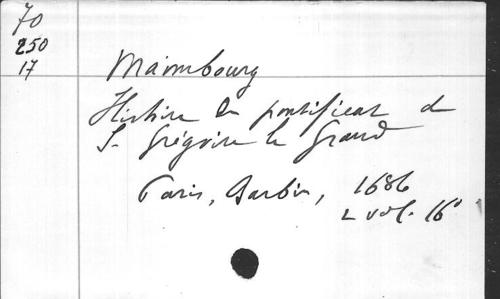 70
250
17
Maimbourg
Histoire du pontificat de
S. Grégoire le Grand
Paris, Barbin, 1686
2 vol. 16°